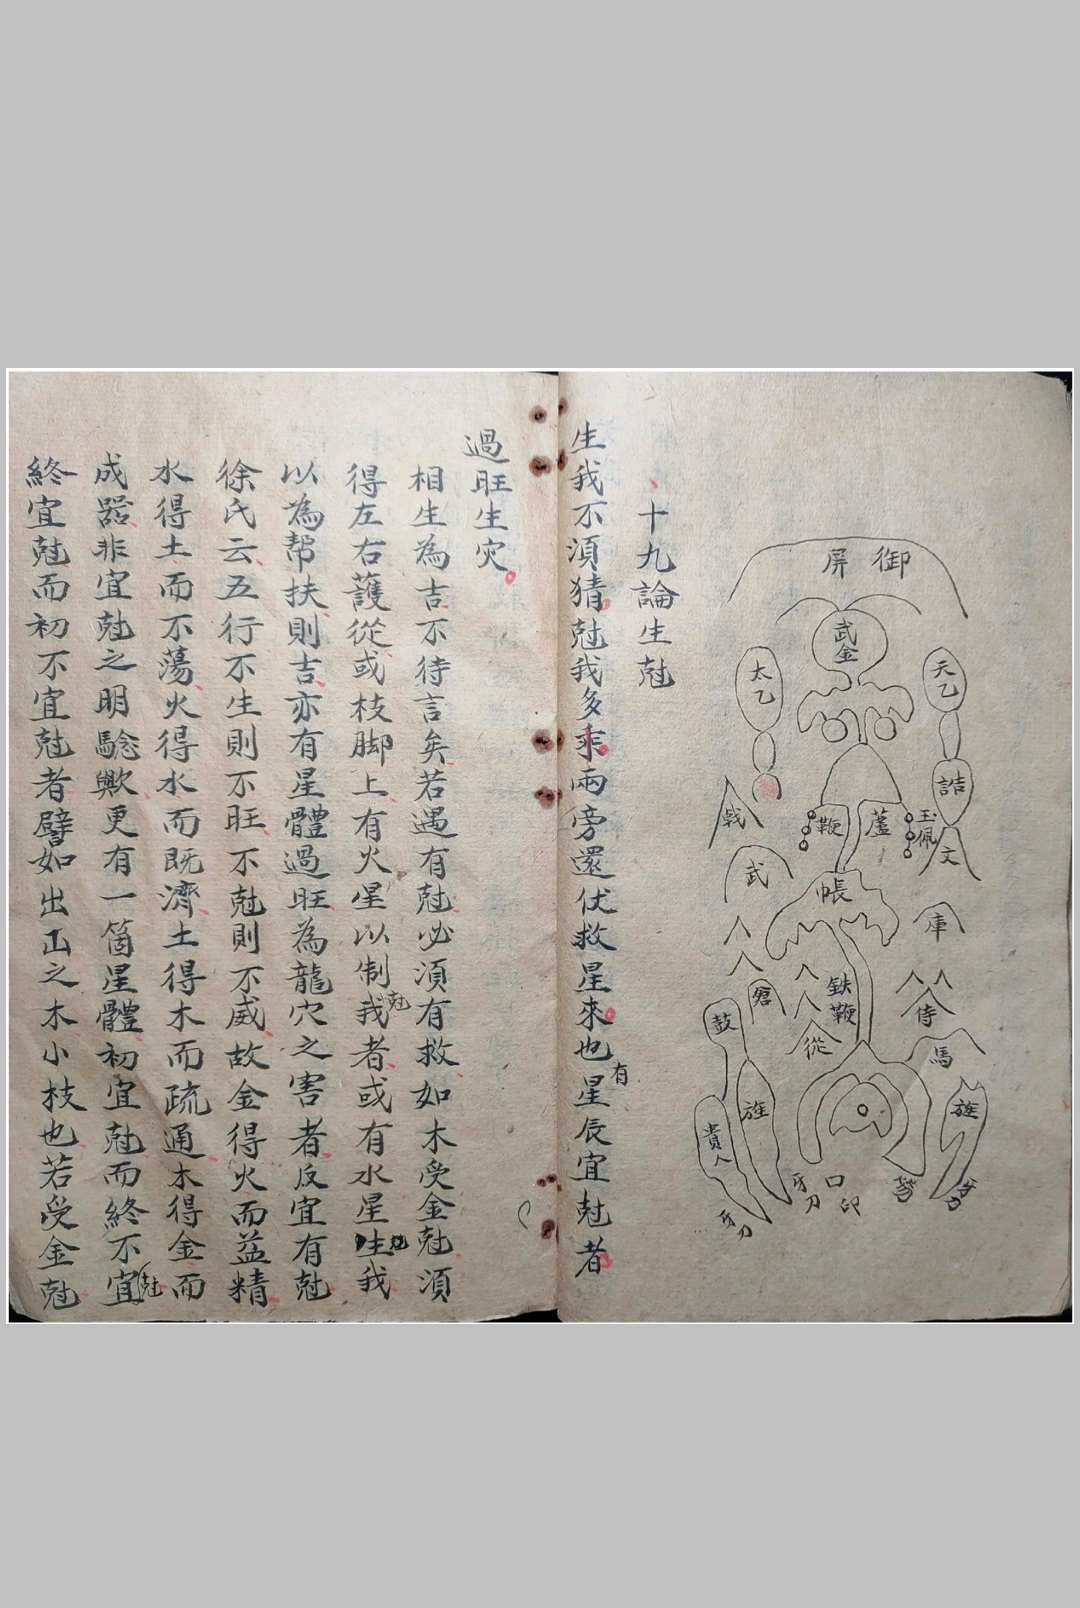 御屏
武金
天乙
太乙
誥
玉佩
文
蘆
鞭
戟
武
帳
庫
鉄鞭
倉
鼓
從
侍
馬
旌
旌
貴人
牙刀
牙刀
口印
十九論生尅
生我不須猜尅我多乖兩旁還伏救星來也有星辰宜尅者
過旺生灾
相生為吉不待言矣若遇有尅必須有救如木受金尅須
得左右護從或枝脚上有火星以制尅我者或有水星生我
以為幫扶則吉亦有星體過旺為龍穴之害者反宜有尅
徐氏云五行不生則不旺不尅則不威故金得火而益精
水得土而不蕩火得水而既濟土得木而疏通木得金而
成器非宜尅之明騐歟更有一箇星體初宜尅而終不宜尅
終宜尅而初不宜尅者譬如出土之木小枝也若受金尅